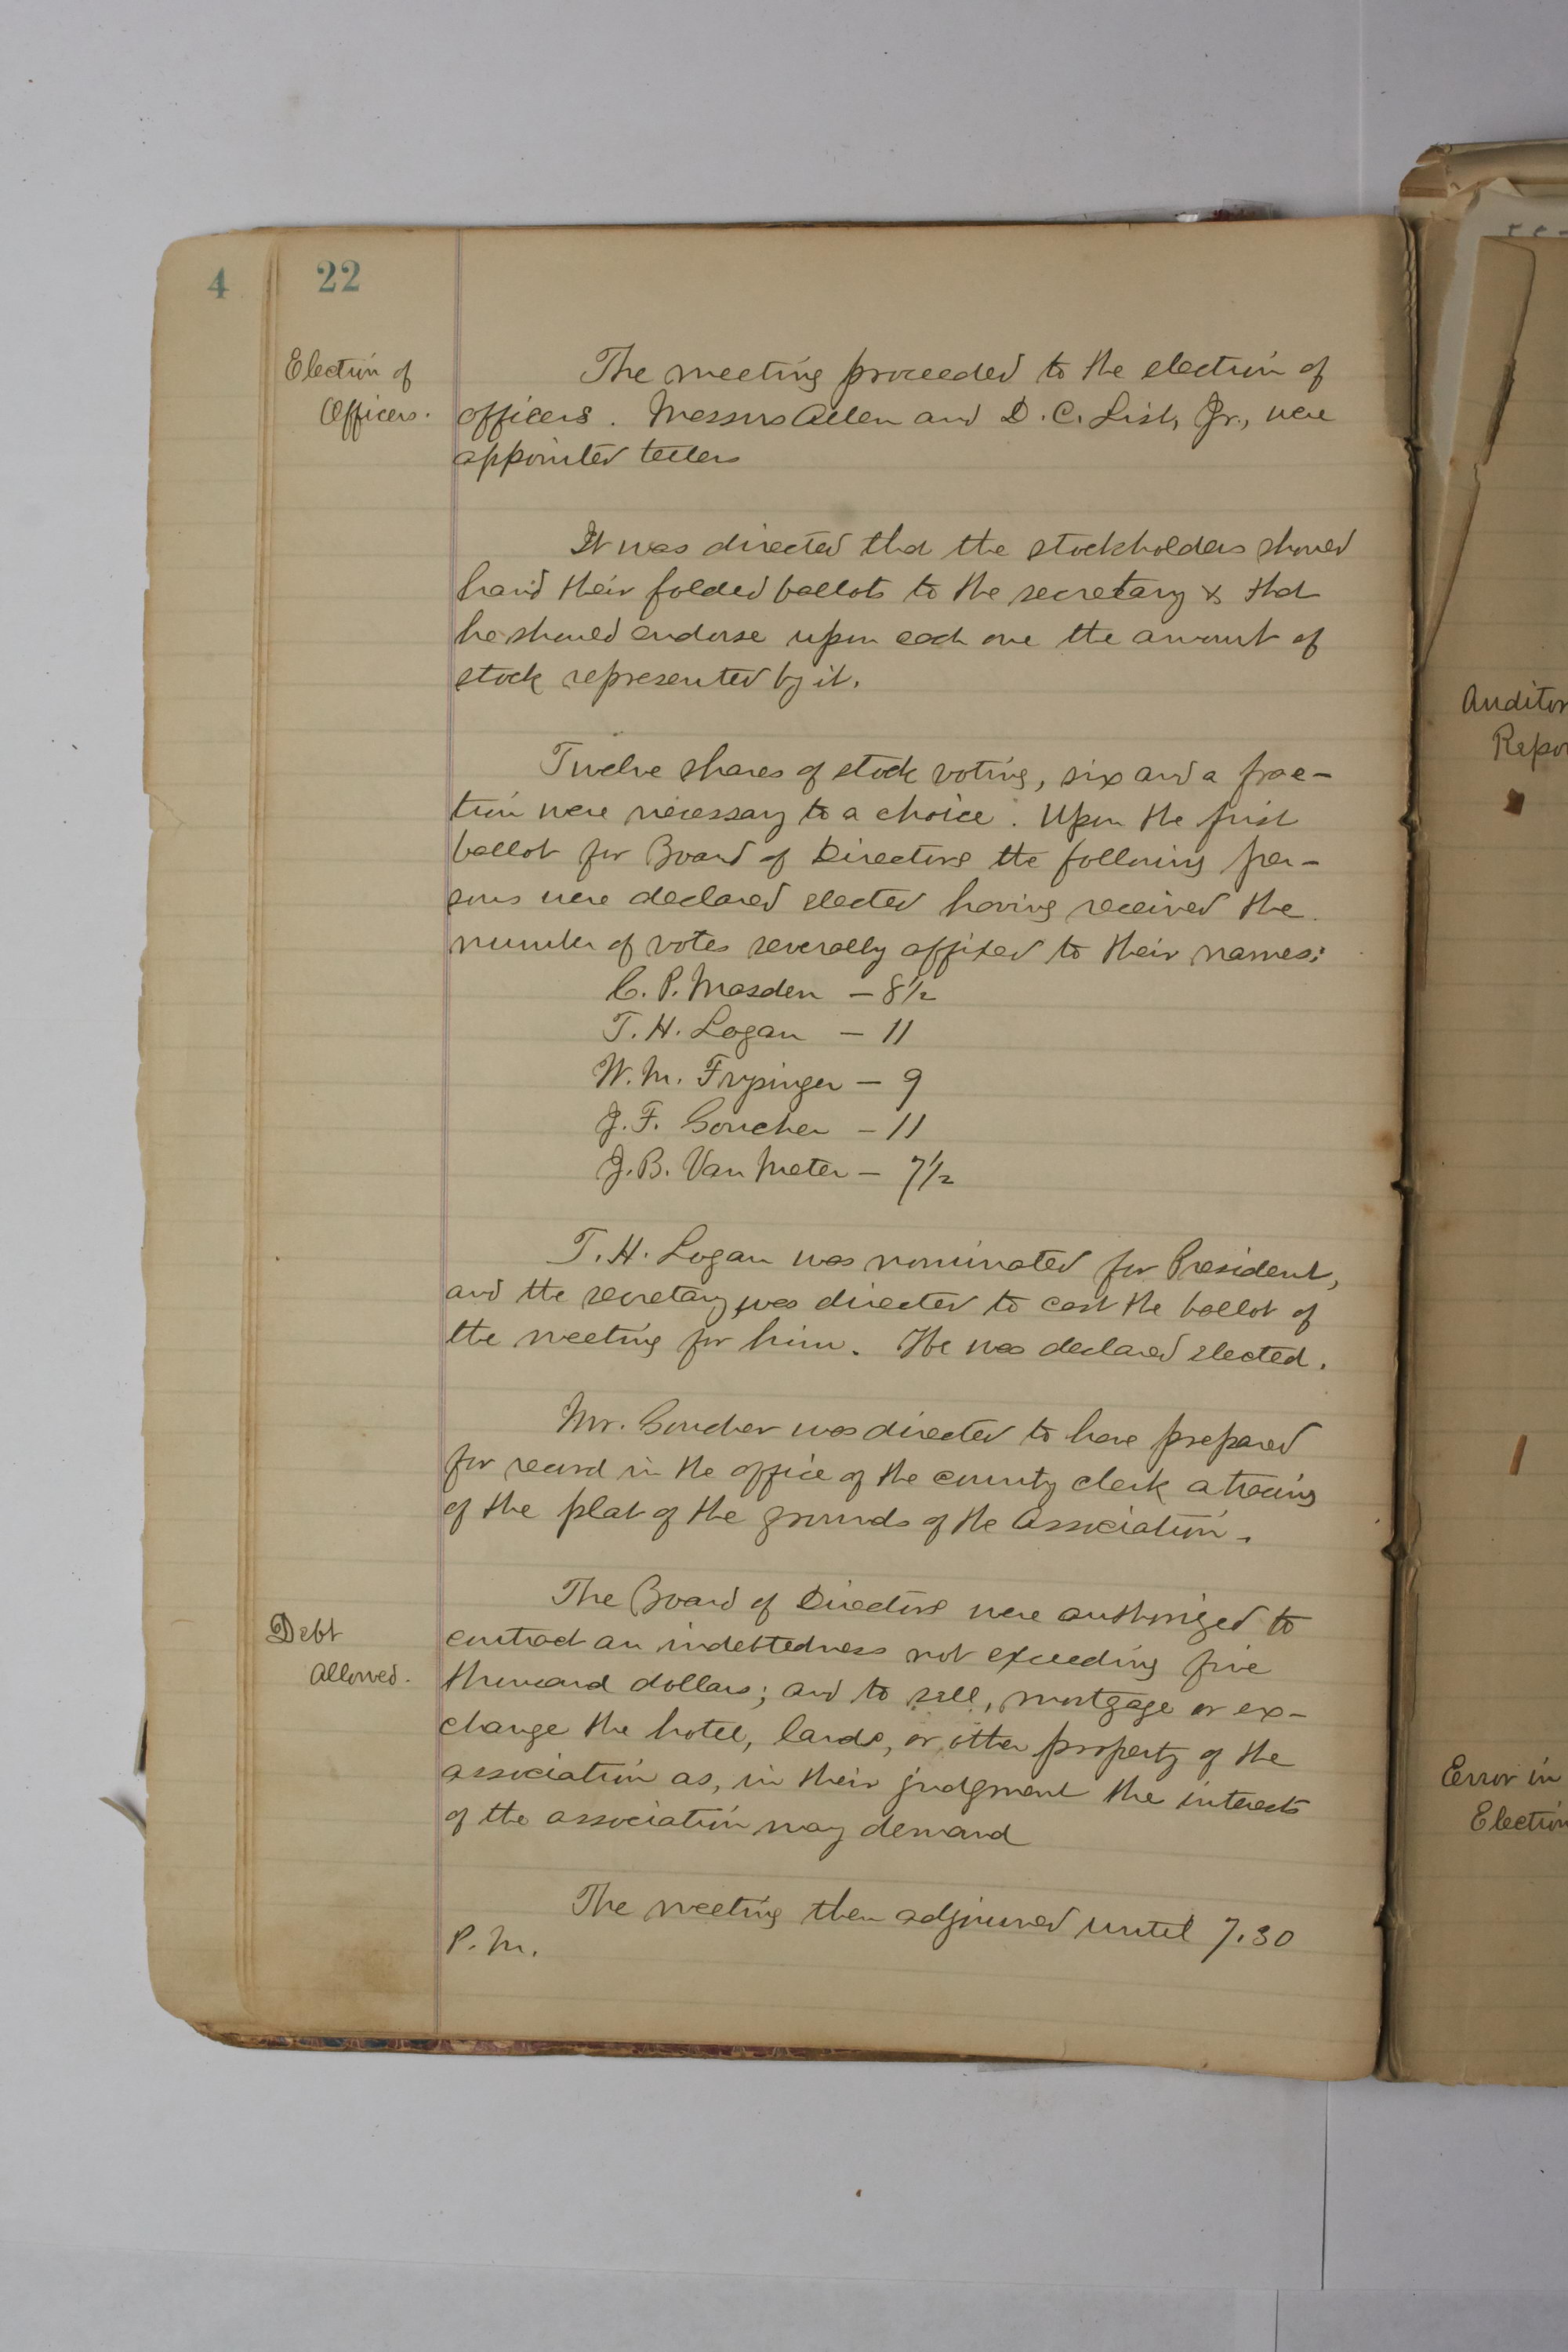 4
22
Election of
Officers.
The meeting proceeded to the election of
officers. Messrs Allen and D. C. List, Jr., were
appointed tellers
It was directed that the stockholders should
hand their folded ballots to the secretary & that
he should endorse upon each one the amount of
stock represented by it.
Twelve shares of stock voting, six and a frac-
tion were necessary to a choice. Upon the first
ballot for Board of Directors the following per-
sons were declared elected having received the
number of votes severally affixed to their names:
C. P. Masden - 8 1/2
T. H. Logan - 11
W. M. Frysinger - 9
J. F. Goucher - 11
J. B. Van Meter - 7 1/2
T. H. Logan was nominated for President,
and the secretary was directed to cast the ballot of
the meeting for him. He was declared elected.
Mr. Goucher was directed to have prepared
for record in the office of the county clerk a tracing
of the plat of the grounds of the Association.
Debt
Allowed.
The Board of Directors were authorized to
contract an indebtedness not exceeding five
thousand dollars; and to sell, mortgage or ex-
change the hotel, lands, or other property of the
association as, in their judgment the interests
of the association may demand
The meeting then adjourned until 7.30
P. M.
Auditor
Repor
Error in
Election